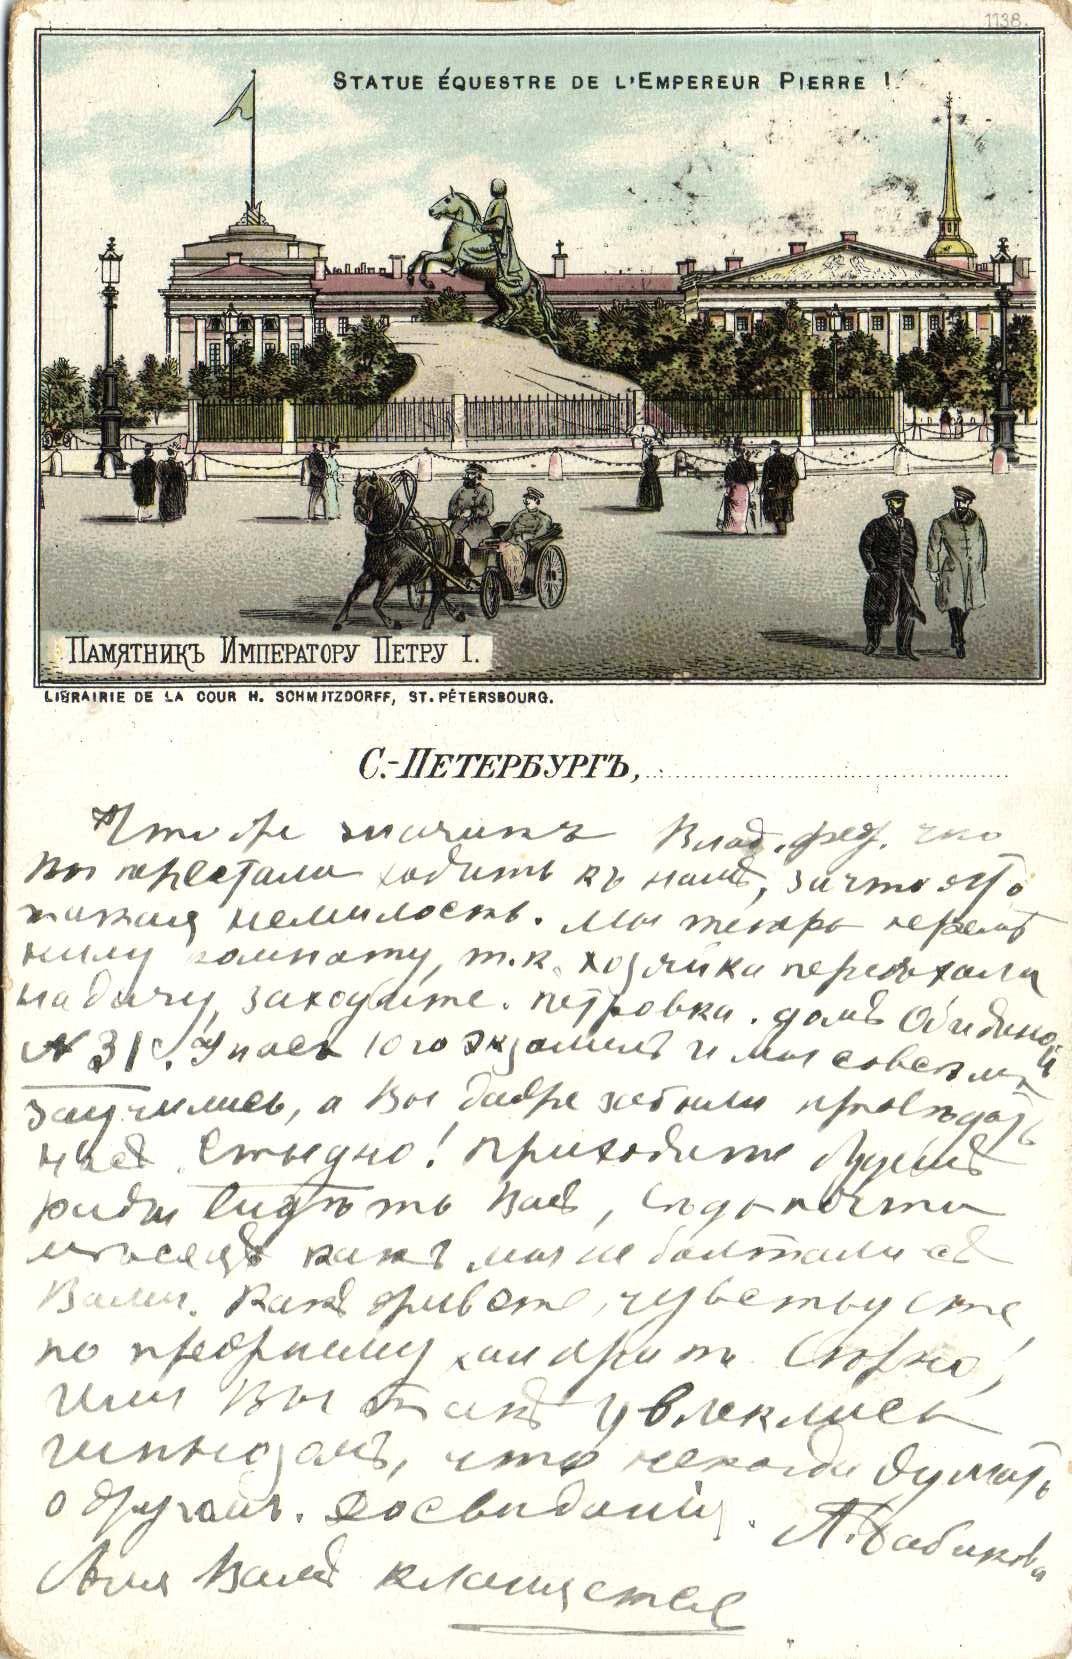 1138.
STATUE ÉQUESTRE DE L'EMPEREUR PIERRE I.
ПАМЯТНИКЪ ИМПЕРАТОРУ ПЕТРУ I.
LIBRAIRIE DE LA COUR H. SCHMITZDORFF, ST. PÉTERSBOURG.
С.-ПЕТЕРБУРГЪ,
Что же значитъ Влад. Фед. что
Вы перестали ходить къ намъ, за что это
такая немилость. Мы теперь перемѣ
нили комнату, т.к. хозяйка переѣхала
на дачу, заходите. Петровка. домъ Обидиной
№ 31. У насъ 10го экзаменъ и мы совсѣмъ
заучились, а Вы даже забыли провѣдать
насъ. Стыдно! Приходите будемъ
рады видѣть Васъ, вѣдь почти
мѣсяцъ какъ мы не болтали съ
Вами. Какъ живете, чувствуете,
по прежнему хандрите. Скучно!
Или Вы такъ увлеклись
гипнозомъ, что некогда думать
о другомъ. Досвиданія.
А. Бабикова
Аня Вамъ кланяется